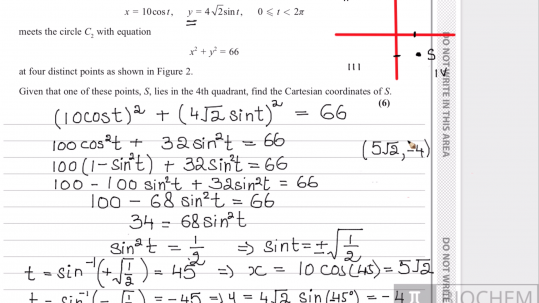 x = 10cos t, y = 4√2 sin t, 0 ⩽ t < 2π
meets the circle C₂ with equation
x² + y² = 66
at four distinct points as shown in Figure 2.
Given that one of these points, S, lies in the 4th quadrant, find the Cartesian coordinates of S.
(6)
S
III
IV
(10cost)² + (4√2 sint)² = 66
100cos²t + 32sin²t = 66
(5√2, -4)
100(1-sin²t) + 32sin²t = 66
100 - 100 sin²t + 32sin²t = 66
100 - 68 sin²t = 66
34 = 68sin²t
sin²t = 1/2 ⇒ sint = ±√(1/2)
t = sin⁻¹(+√(1/2)) = 45° ⇒ x = 10 cos(45) = 5√2
t = sin⁻¹(-√(1/2)) = -45 ⇒ y = 4√2 sin(45°) = -4
DO NOT WRITE IN THIS AREA
DO NOT WRITE